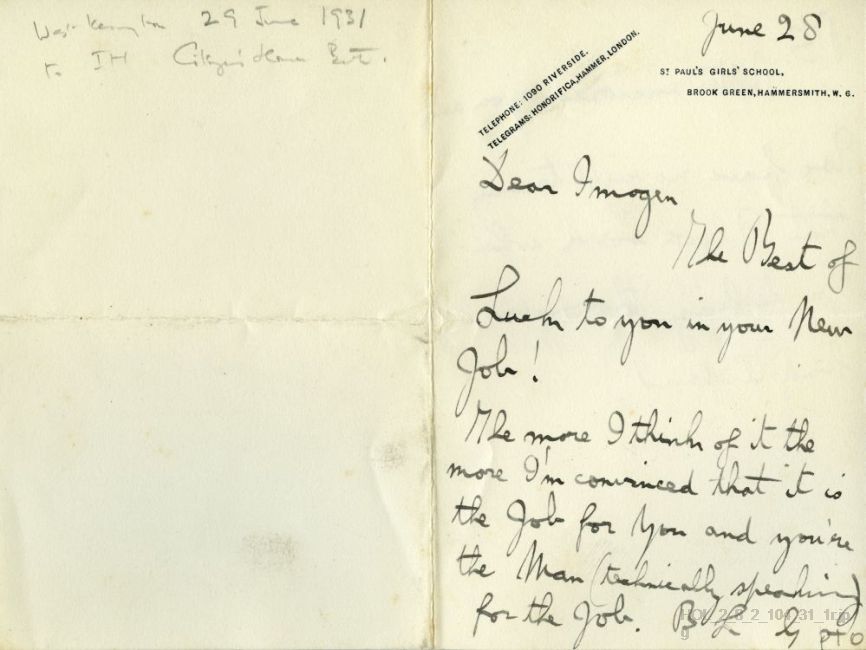 West Kensington 29 June 1931
to IH Citizen's House Bath.
June 28
TELEPHONE: 1090 RIVERSIDE.
TELEGRAMS: HONORIFICA, HAMMER, LONDON.
ST PAUL'S GIRLS' SCHOOL,
BROOK GREEN, HAMMERSMITH, W. 6.
Dear Imogen
The Best of
Luck to you in your New
Job!
The more I think of it the
more I'm convinced that it is
the Job for You and you're
the Man (technically speaking)
for the Job.
PTO